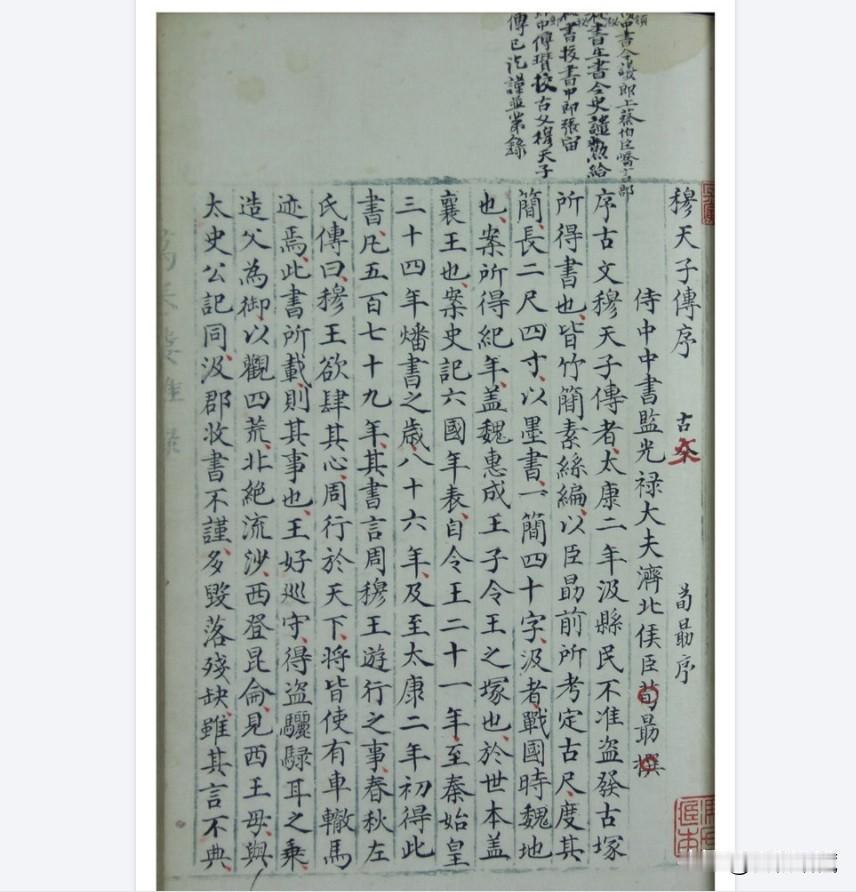 中書令議郎上蔡伯臣嶠言部
書主書令史譴勲給
書校書中郎張宙
郎中傅瓚校古文穆天子
傳已訖謹並第錄
穆天子傳序 古文 荀勗序
侍中中書監光禄大夫濟北侯臣荀勗撰
序古文穆天子傳者、太康二年、汲縣民不准盗發古塚
所得書也、皆竹簡素絲編、以臣勗前所考定古尺、度其
簡、長二尺四寸、以墨書、一簡四十字、汲者、戰國時魏地
也、案所得紀年、盖魏惠成王子令王之塚也、於世本盖
襄王也、案史記六國年表、自令王二十一年、至秦始皇
三十四年燔書之歲、八十六年、及至太康二年初得此
書、凡五百七十九年、其書言周穆王遊行之事、春秋左
氏傳曰、穆王欲肆其心、周行於天下、將皆使有車轍馬
迹焉、此書所載、則其事也、王好巡守、得盗驪騄耳之乗、
造父為御、以觀四荒、北絶流沙、西登昆侖、見西王母、與
太史公記同、汲郡收書不謹、多毁落殘缺、雖其言不典、